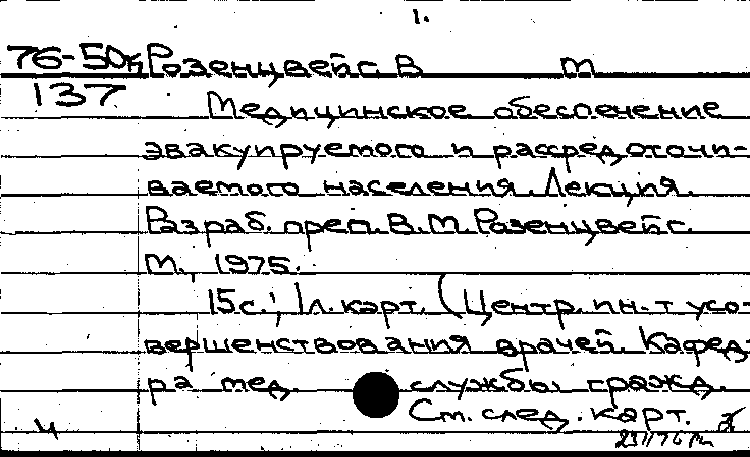 1.
76-50к Розенцвейг В М
137 Медицинское обеспечение
эвакуируемого и рассредоточи-
ваемого населения. Лекция.
Разраб. преп. В.М. Розенцвейг.
М., 1975.
15с.; 1л. карт. (Центр. ин-т усо-
вершенствования врачей. Кафед-
ра мед. службы гражд.
См. след. карт.
ч